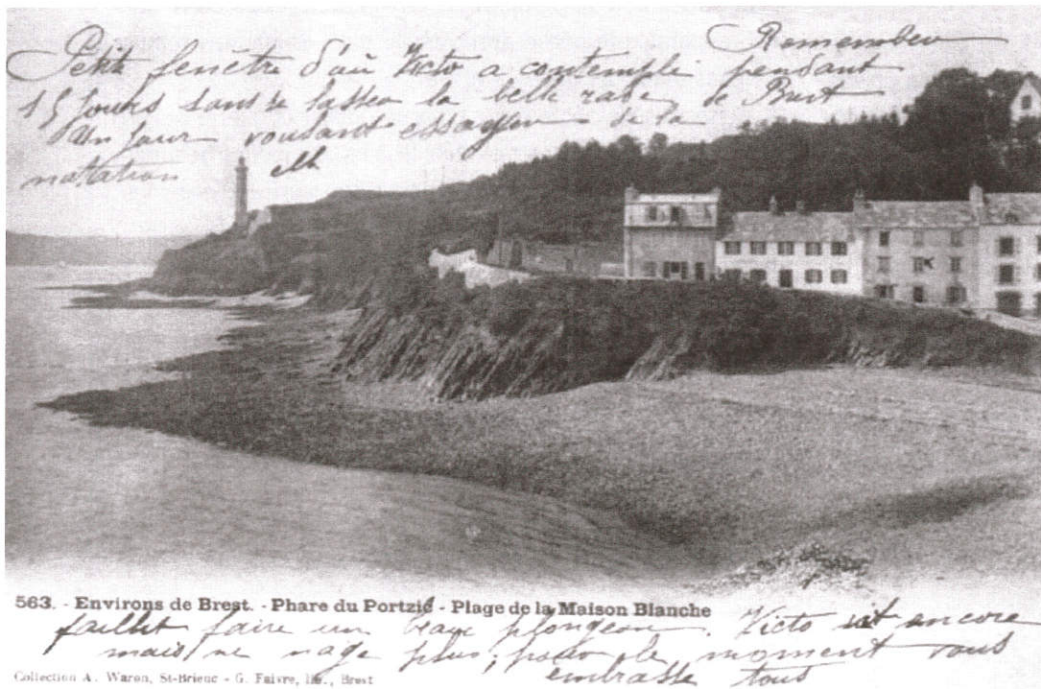 Remember
Petite fenêtre d'où Victo a contemplé pendant
15 jours sans se lasser la belle rade de Brest
Un jour voulant essayer de la
natation elle
563. - Environs de Brest. - Phare du Portzic - Plage de la Maison Blanche
faillit faire un beau plongeon. Victo rit encore
mais ne nage plus, pour le moment vous
embrasse tous
Collection A. Waron, St-Brieuc - G. Faivre, lib., Brest